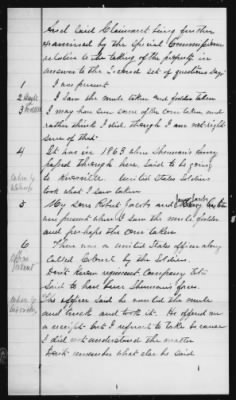 And said Claimant being further
examined by the Special Commissioner
relative to the taking of the property in
answer to the second set of questions says
1 I was present
2 Mule
3 Fodder I saw the mule taken and fodder taken
I may have seen some of the corn taken and
rather think I did, though I am not right
sure of that
4 It was in 1863 when Sherman's army
passed through here, said to be going
to Knoxville. United States Soldiers
took what I saw taken
5 My Sons Robert Jacobs and
were present when I saw the mule fodder
and perhaps the corn taken
6 There was a United States officer along
Officer present called Colonel by the Soldiers
Don't know regiment Company &c
Said to have been Sherman's force.
The officer said he wanted the mule
and took it. He offered me
a receipt but I refused to take because
I did not understand the matter
Don't remember what else he said